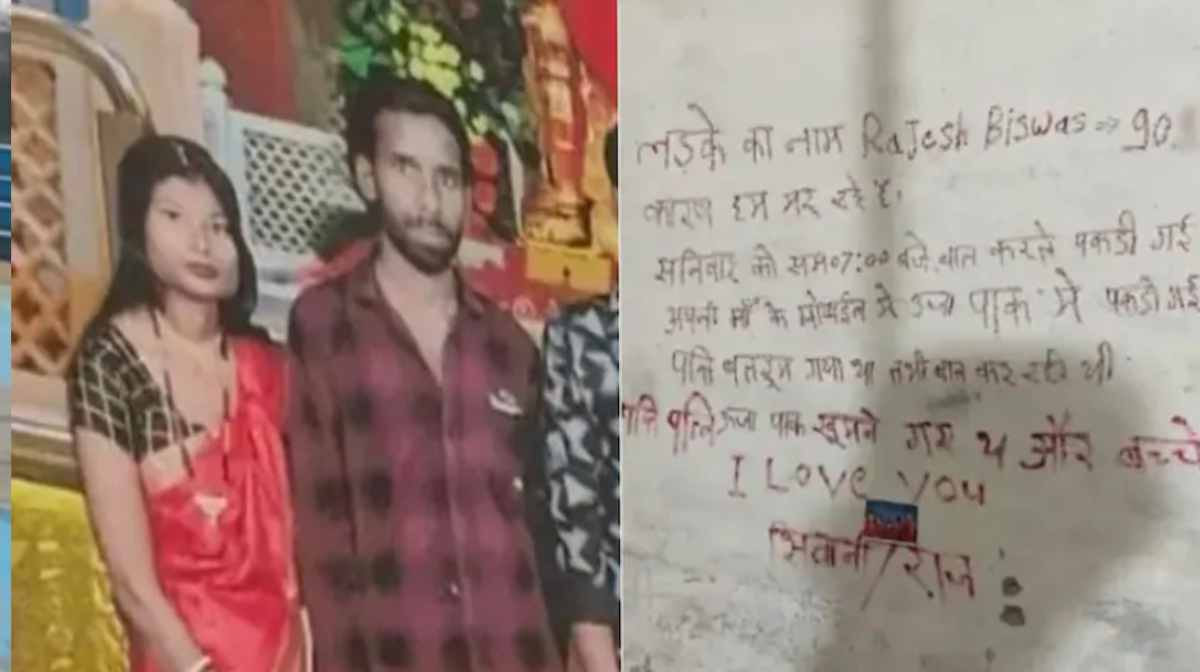 लड़के का नाम Rajesh Biswas ⇒ 90
कारण हम मर रहे है।
सनिवार को सम07:00 बजे बात करते पकडी गई
अपनी माँ के मोबाईल से उजा पाक में पकडी गई
पति बतरूम गया था तभी बात कर रही थी
पति पत्नि उजा पाक घुमने गए थ और बच्चे
I Love You
शिवानी/राज